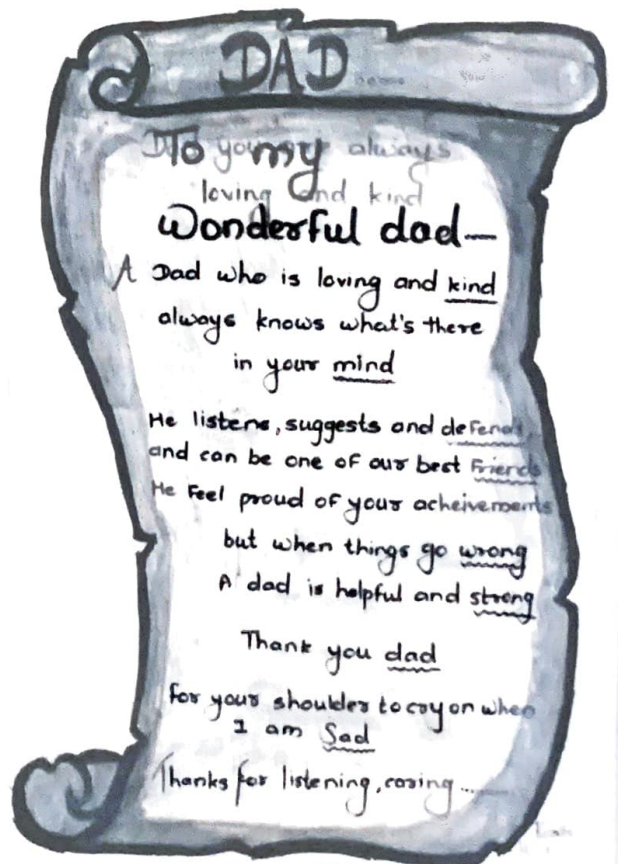 DAD
To my
you are always
loving and kind
Wonderful dad—
A Dad who is loving and kind
always knows what's there
in your mind
He listens, suggests and defends,
and can be one of our best Friends
He Feel proud of your acheivements
but when things go wrong
A dad is helpful and strong
Thank you dad
For your shoulder to cry on when
I am Sad
Thanks for listening, caring......